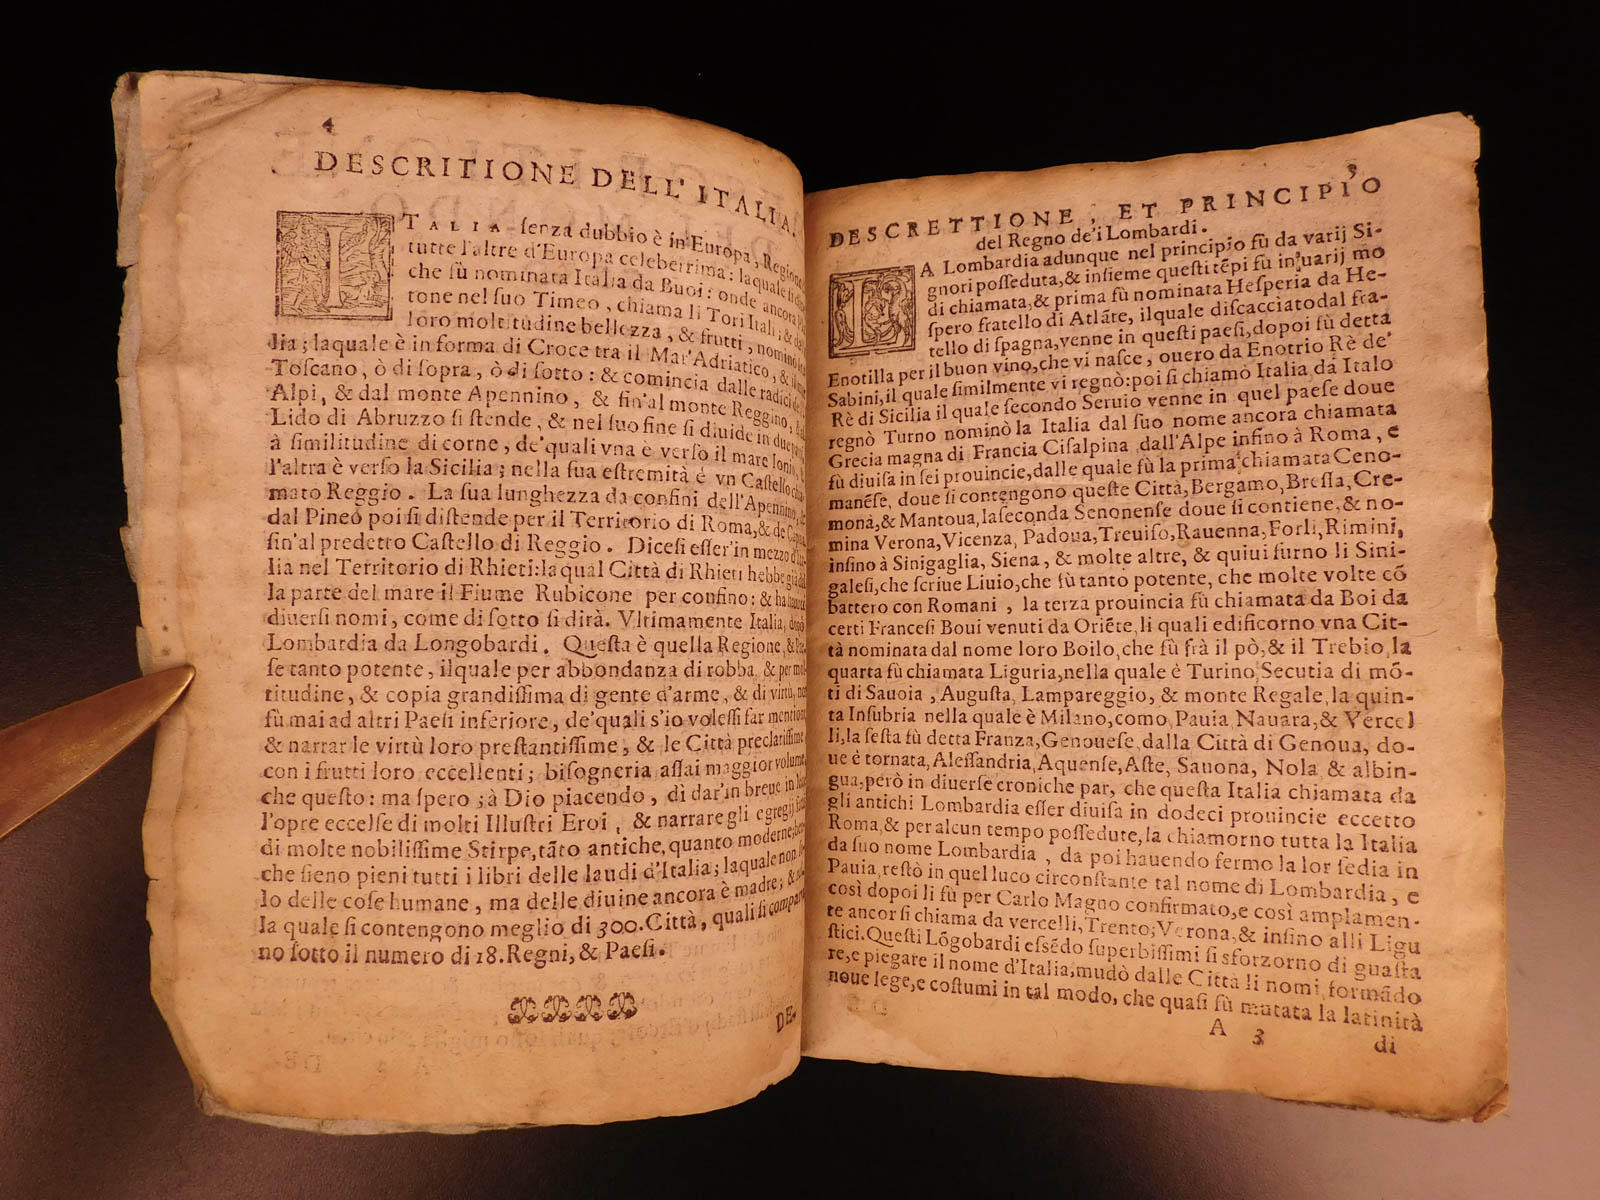 4
DESCRITIONE DELL' ITALIA.
ITALIA ſenza dubbio è in Europa, Regione
tutte l'altre d'Europa celeberrima: laquale ſi
che fù nominata Italia da Buoi: onde ancora
tone nel ſuo Timeo, chiama li Tori Itali; &
loro moltitudine bellezza, & frutti, nomino
lia; laquale è in forma di Croce tra il Mar'Adriatico, & il
Toſcano, ò di ſopra, ò di ſotto: & comincia dalle radici
Alpi, & dal monte Apennino, & ſin'al monte Reggino,
Lido di Abruzzo ſi ſtende, & nel ſuo fine ſi diuide in due
à ſimilitudine di corne, de'quali vna è verſo il mare Ionio,
l'altra è verſo la Sicilia; nella ſua eſtremità é vn Caſtello chia
mato Reggio. La ſua lunghezza da confini dell'Apennino,
dal Pineo poi ſi diſtende per il Territorio di Roma, & de
ſin'al predetto Caſtello di Reggio. Diceſi eſſer'in mezzo d'Ita
lia nel Territorio di Rhieti: la qual Città di Rhieti hebbe già
la parte del mare il Fiume Rubicone per confino: & ha
diuerſi nomi, come di ſotto ſi dirà. Vltimamente Italia,
Lombardia da Longobardi. Queſta è quella Regione, &
ſe tanto potente, ilquale per abbondanza di robba, & per mol
titudine, & copia grandiſſima di gente d'arme, & di virtù, non
fù mai ad altri Paeſi inferiore, de'quali s'io voleſſi far mentione
& narrar le virtù loro preſtantiſſime, & le Città preclariſſime
con i frutti loro eccellenti; biſogneria aſſai maggior volume,
che queſto: ma ſpero, à Dio piacendo, di dar'in breue in luce
l'opre eccelſe di molti Illuſtri Eroi, & narrare gli egregij
di molte nobiliſſime Stirpe, tāto antiche, quanto moderne;
che ſieno pieni tutti i libri delle laudi d'Italia; laquale non ſo
lo delle coſe humane, ma delle diuine ancora è madre; &
la quale ſi contengono meglio di 300. Città, quali ſi compar
no ſotto il numero di 18. Regni, & Paeſi.
DE-
3
DESCRETTIONE, ET PRINCIPIO
del Regno de'i Lombardi.
LA Lombardia adunque nel principio fù da varij Si-
gnori poſſeduta, & inſieme queſti tēpi fu in varij mo
di chiamata, & prima fù nominata Heſperia da He-
ſpero fratello di Atlāte, ilquale diſcacciato dal fra-
tello di ſpagna, venne in queſti paeſi, dopoi fù detta
Enotilla per il buon vino, che vi naſce, ouero da Enotrio Rè de'
Sabini, il quale ſimilmente vi regnò: poi ſi chiamò Italia da Italo
Rè di Sicilia il quale ſecondo Seruio venne in quel paeſe doue
regnò Turno nominò la Italia dal ſuo nome ancora chiamata
Grecia magna di Francia Ciſalpina dall'Alpe infino à Roma, e
fù diuiſa in ſei prouincie, dalle quale fù la prima chiamata Ceno-
manēſe, doue ſi contengono queſte Città, Bergamo, Breſſa, Cre-
mona, & Mantoua, la ſeconda Senonenſe doue ſi contiene, & no-
mina Verona, Vicenza, Padoua, Treuiſo, Rauenna, Forlì, Rimini,
inſino à Sinigaglia, Siena, & molte altre, & quiui furno li Sini-
galeſi, che ſcriue Liuio, che fù tanto potente, che molte volte cō
battero con Romani, la terza prouincia fù chiamata da Boi da
certi Franceſi Boui venuti da Oriēte, li quali edificorno vna Cit-
tà nominata dal nome loro Boilo, che fù frà il pò, & il Trebio, la
quarta fù chiamata Liguria, nella quale è Turino, Secutia di mō-
ti di Sauoia, Auguſta, Lampareggio, & monte Regale, la quin-
ta Inſubria nella quale è Milano, como Pauia Nauara, & Vercel
li, la ſeſta fù detta Franza, Genoueſe dalla Città di Genoua, do-
ue è tornata, Aleſſandria, Aquenſe, Aſte, Sauona, Nola & albin-
gua, però in diuerſe croniche par, che queſta Italia chiamata da
gli antichi Lombardia eſſer diuiſa in dodeci prouincie eccetto
Roma, & per alcun tempo poſſedute, la chiamorno tutta la Italia
da ſuo nome Lombardia, da poi hauendo fermo la lor ſedia in
Pauia, reſtò in quel luco circonſtante tal nome di Lombardia, e
così dopoi li fù per Carlo Magno confirmato, e così amplamen-
te ancor ſi chiama da vercelli, Trento, Verona, & inſino alli Ligu
ſtici. Queſti Lōgobardi eſſēdo ſuperbiſſimi ſi sforzorno di guaſta
re, e piegare il nome d'Italia, mudò dalle Città li nomi formādo
noue lege, e coſtumi in tal modo, che quaſi fù mutata la latinità
A 3
di